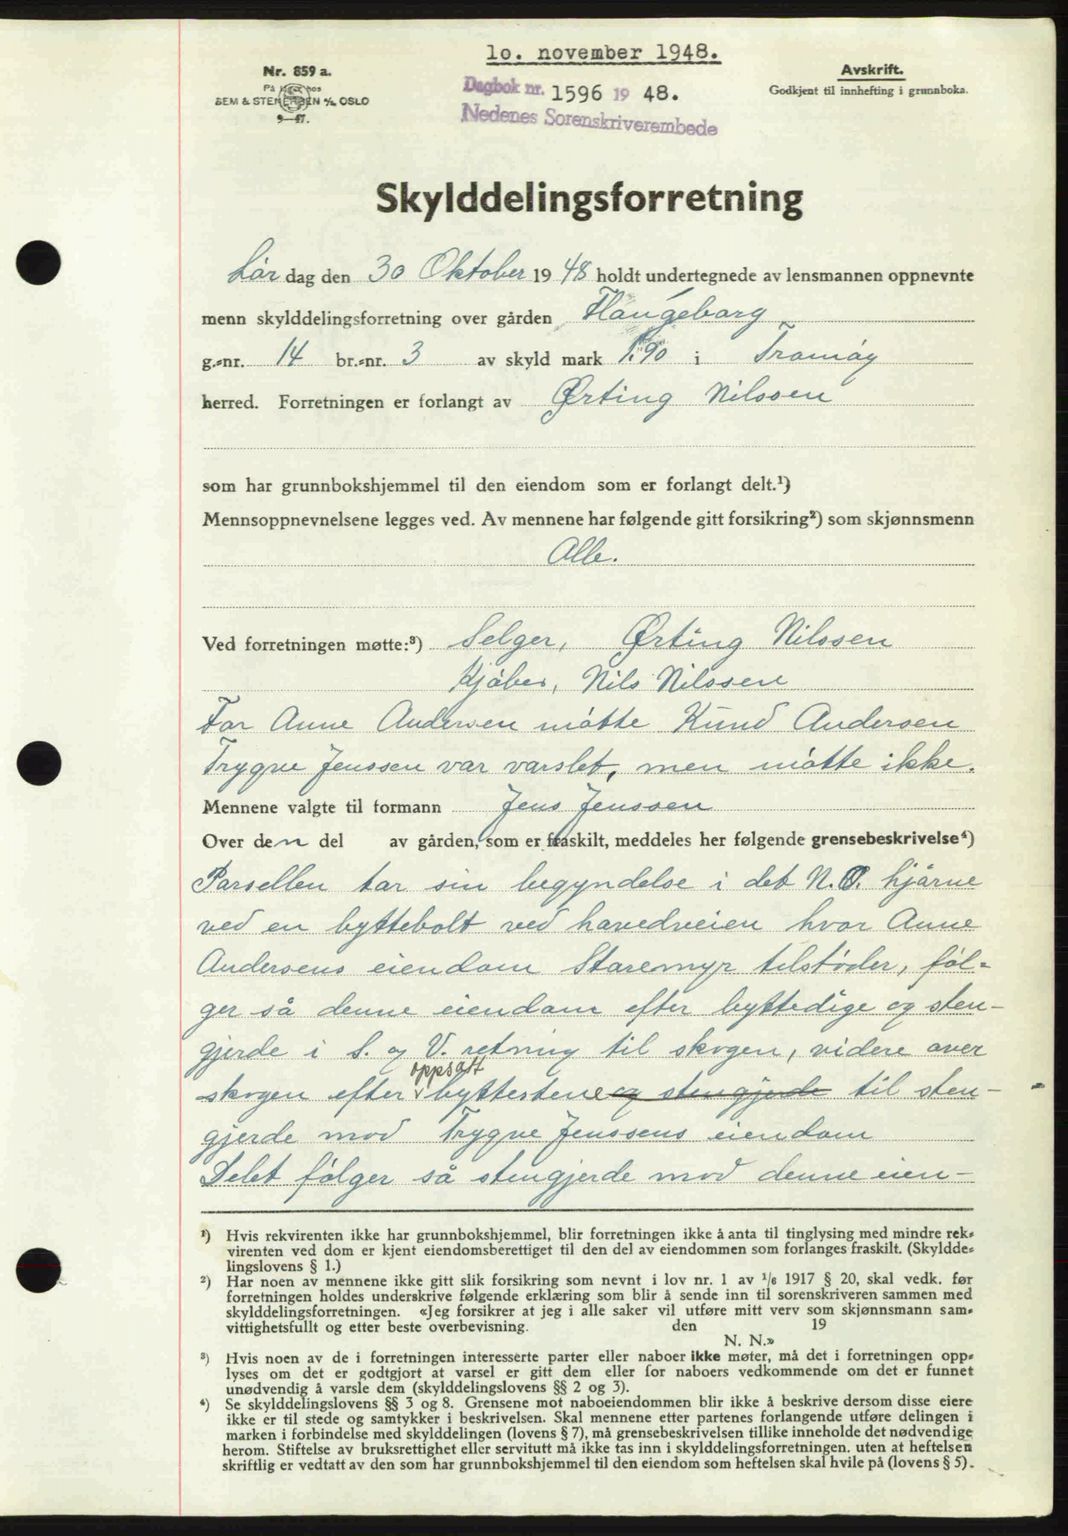 10. november 1948.
Nr. 859 a.
På lager hos
SEM & STENERSEN A/S OSLO
9—47.
Dagbok nr. 1596 19 48.
Nedenes Sorenskriverembede
Avskrift.
Godkjent til innhefting i grunnboka.
Skylddelingsforretning
Lør dag den 30 Oktober 19 48 holdt undertegnede av lensmannen oppnevnte
menn skylddelingsforretning over gården Haugeborg
g.-nr. 14 br.-nr. 3 av skyld mark 1.90 i Tromøy
herred. Forretningen er forlangt av Ørting Nilssen
som har grunnbokshjemmel til den eiendom som er forlangt delt.¹)
Mennsoppnevnelsene legges ved. Av mennene har følgende gitt forsikring²) som skjønnsmenn
Alle.
Ved forretningen møtte:³) Selger, Ørting Nilssen
Kjøber, Nils Nilssen
For Anne Andersen møtte Knud Andersen
Trygve Jenssen var varslet, men møtte ikke.
Mennene valgte til formann Jens Jenssen
Over den del av gården, som er fraskilt, meddeles her følgende grensebeskrivelse⁴)
Parsellen tar sin begyndelse i det N.O. hjørne
ved en byttebolt ved hovedveien hvor Anne
Andersens eiendom Staremyr tilstøder, føl-
ger så denne eiendom efter byttedige og sten-
gjerde i S. og V. retning til skogen, videre over
oppsatt
skogen efter byttestene og stengjerde til sten-
gjerde mod Trygve Jenssens eiendom
Delet følger så stengjerde mod denne eien-
¹) Hvis rekvirenten ikke har grunnbokshjemmel, blir forretningen ikke å anta til tinglysing med mindre rek-
virenten ved dom er kjent eiendomsberettiget til den del av eiendommen som forlanges fraskilt. (Skyldde-
lingslovens § 1.)
²) Har noen av mennene ikke gitt slik forsikring som nevnt i lov nr. 1 av 1/6 1917 § 20, skal vedk. før
forretningen holdes underskrive følgende erklæring som blir å sende inn til sorenskriveren sammen med
skylddelingsforretningen. «Jeg forsikrer at jeg i alle saker vil utføre mitt verv som skjønnsmann sam-
vittighetsfullt og etter beste overbevisning. den 19
N. N.»
³) Hvis noen av de i forretningen interesserte parter eller naboer ikke møter, må det i forretningen opp-
lyses om det er godtgjort at varsel er gitt dem eller for naboers vedkommende om det er funnet
unødvendig å varsle dem (skylddelingslovens §§ 2 og 3).
⁴) Se skylddelingslovens §§ 3 og 8. Grensene mot naboeiendommen blir ikke å beskrive dersom disse eiere
ikke er til stede og samtykker i beskrivelsen. Skal mennene etter partenes forlangende utføre delingen i
marken i forbindelse med skylddelingen (lovens § 7), må grensebeskrivelsen tillike inneholde det nødvendige
herom. Stiftelse av bruksrettighet eller servitutt må ikke tas inn i skylddelingsforretningen. uten at heftelsen
skriftlig er vedtatt av den som har grunnbokshjemmel til den eiendom som heftelsen skal hvile på (lovens § 5).